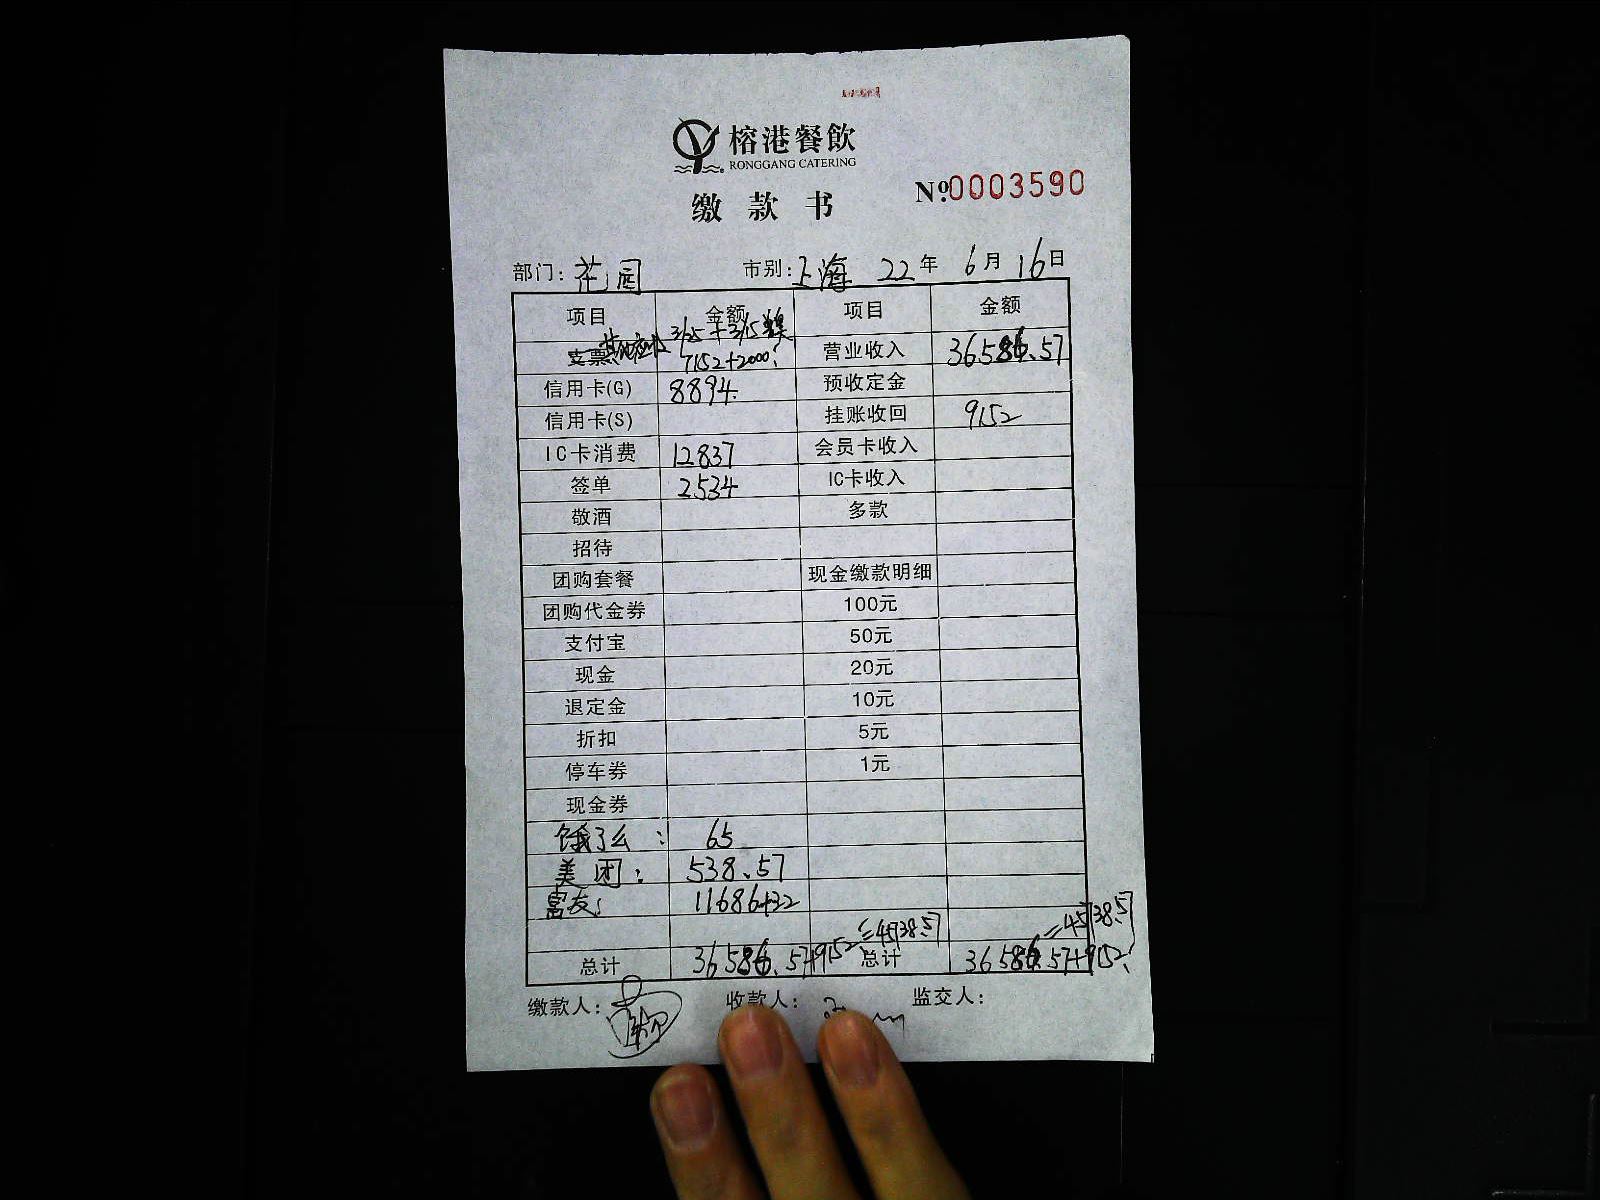 榕港餐飲
RONGGANG CATERING
缴款书
№0003590
部门: 花园 市别: 上海 22年 6月 16日
项目 金额 项目 金额
支票 3/25+3/15 7152+2000 营业收入 36586.57
信用卡(G) 8894. 预收定金
信用卡(S) 挂账收回 9152
IC卡消费 12837 会员卡收入
签单 2534 IC卡收入
敬酒 多款
招待
团购套餐 现金缴款明细
团购代金券 100元
支付宝 50元
现金 20元
退定金 10元
折扣 5元
停车券 1元
现金券
饿了么: 65
美团: 538.57
富友: 11686+32
=45738.57 =45738.57
总计 36586.57+9152 总计 36586.57+9152
缴款人: 收款人: 监交人: